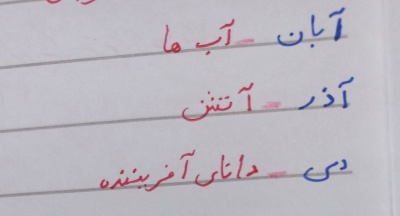 آبان - آب ها
آذر - آتش
دی - دانای آفریننده